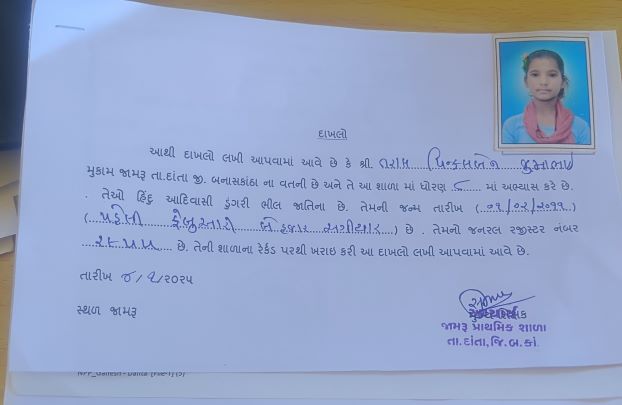 દાખલો
આથી દાખલો લખી આપવામાં આવે છે કે શ્રી. તરાલ પિન્કલબેન જુમાભાઇ
મુકામ જામરૂ તા.દાંતા જી. બનાસકાંઠા ના વતની છે અને તે આ શાળા માં ધોરણ ૮ માં અભ્યાસ કરે છે.
. તેઓ હિંદુ આદિવાસી ડુંગરી ભીલ જાતિના છે. તેમની જન્મ તારીખ (૦૧/૦૨/૨૦૧૧)
(પહેલી ફેબ્રુઆરી બે હજાર અગીયાર) છે . તેમનો જનરલ રજીસ્ટર નંબર
૨૮૫૫ છે. તેની શાળાના રેર્કડ પરથી ખરાઇ કરી આ દાખલો લખી આપવામાં આવે છે.
તારીખ ૪/૧/૨૦૨૫
સ્થળ જામરૂ
જામરૂ પ્રાથમિક શાળા
તા.દાંતા,જિ.બ.કાં.